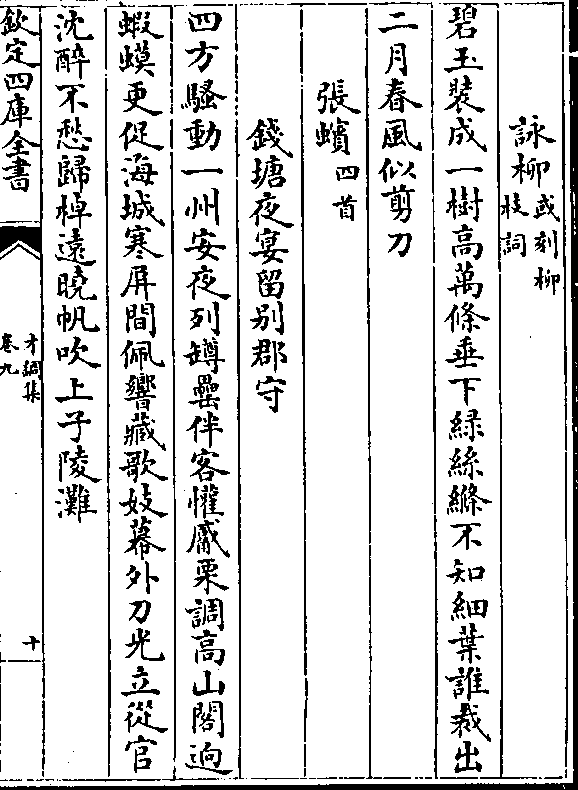 詠柳或刻柳枝詞
碧玉裝成一樹高萬條垂下綠絲縧不知細葉誰裁出
二月春風似剪刀
張蠙四首
錢塘夜宴留别郡守
四方騷動一州安夜列罇罍伴客懽觱栗調高山閣逈
蝦蟆更促海城寒屏間佩響藏歌妓幕外刀光立從官
沈醉不愁歸棹遠曉帆吹上子陵灘
欽定四庫全書
才調集
卷九
十